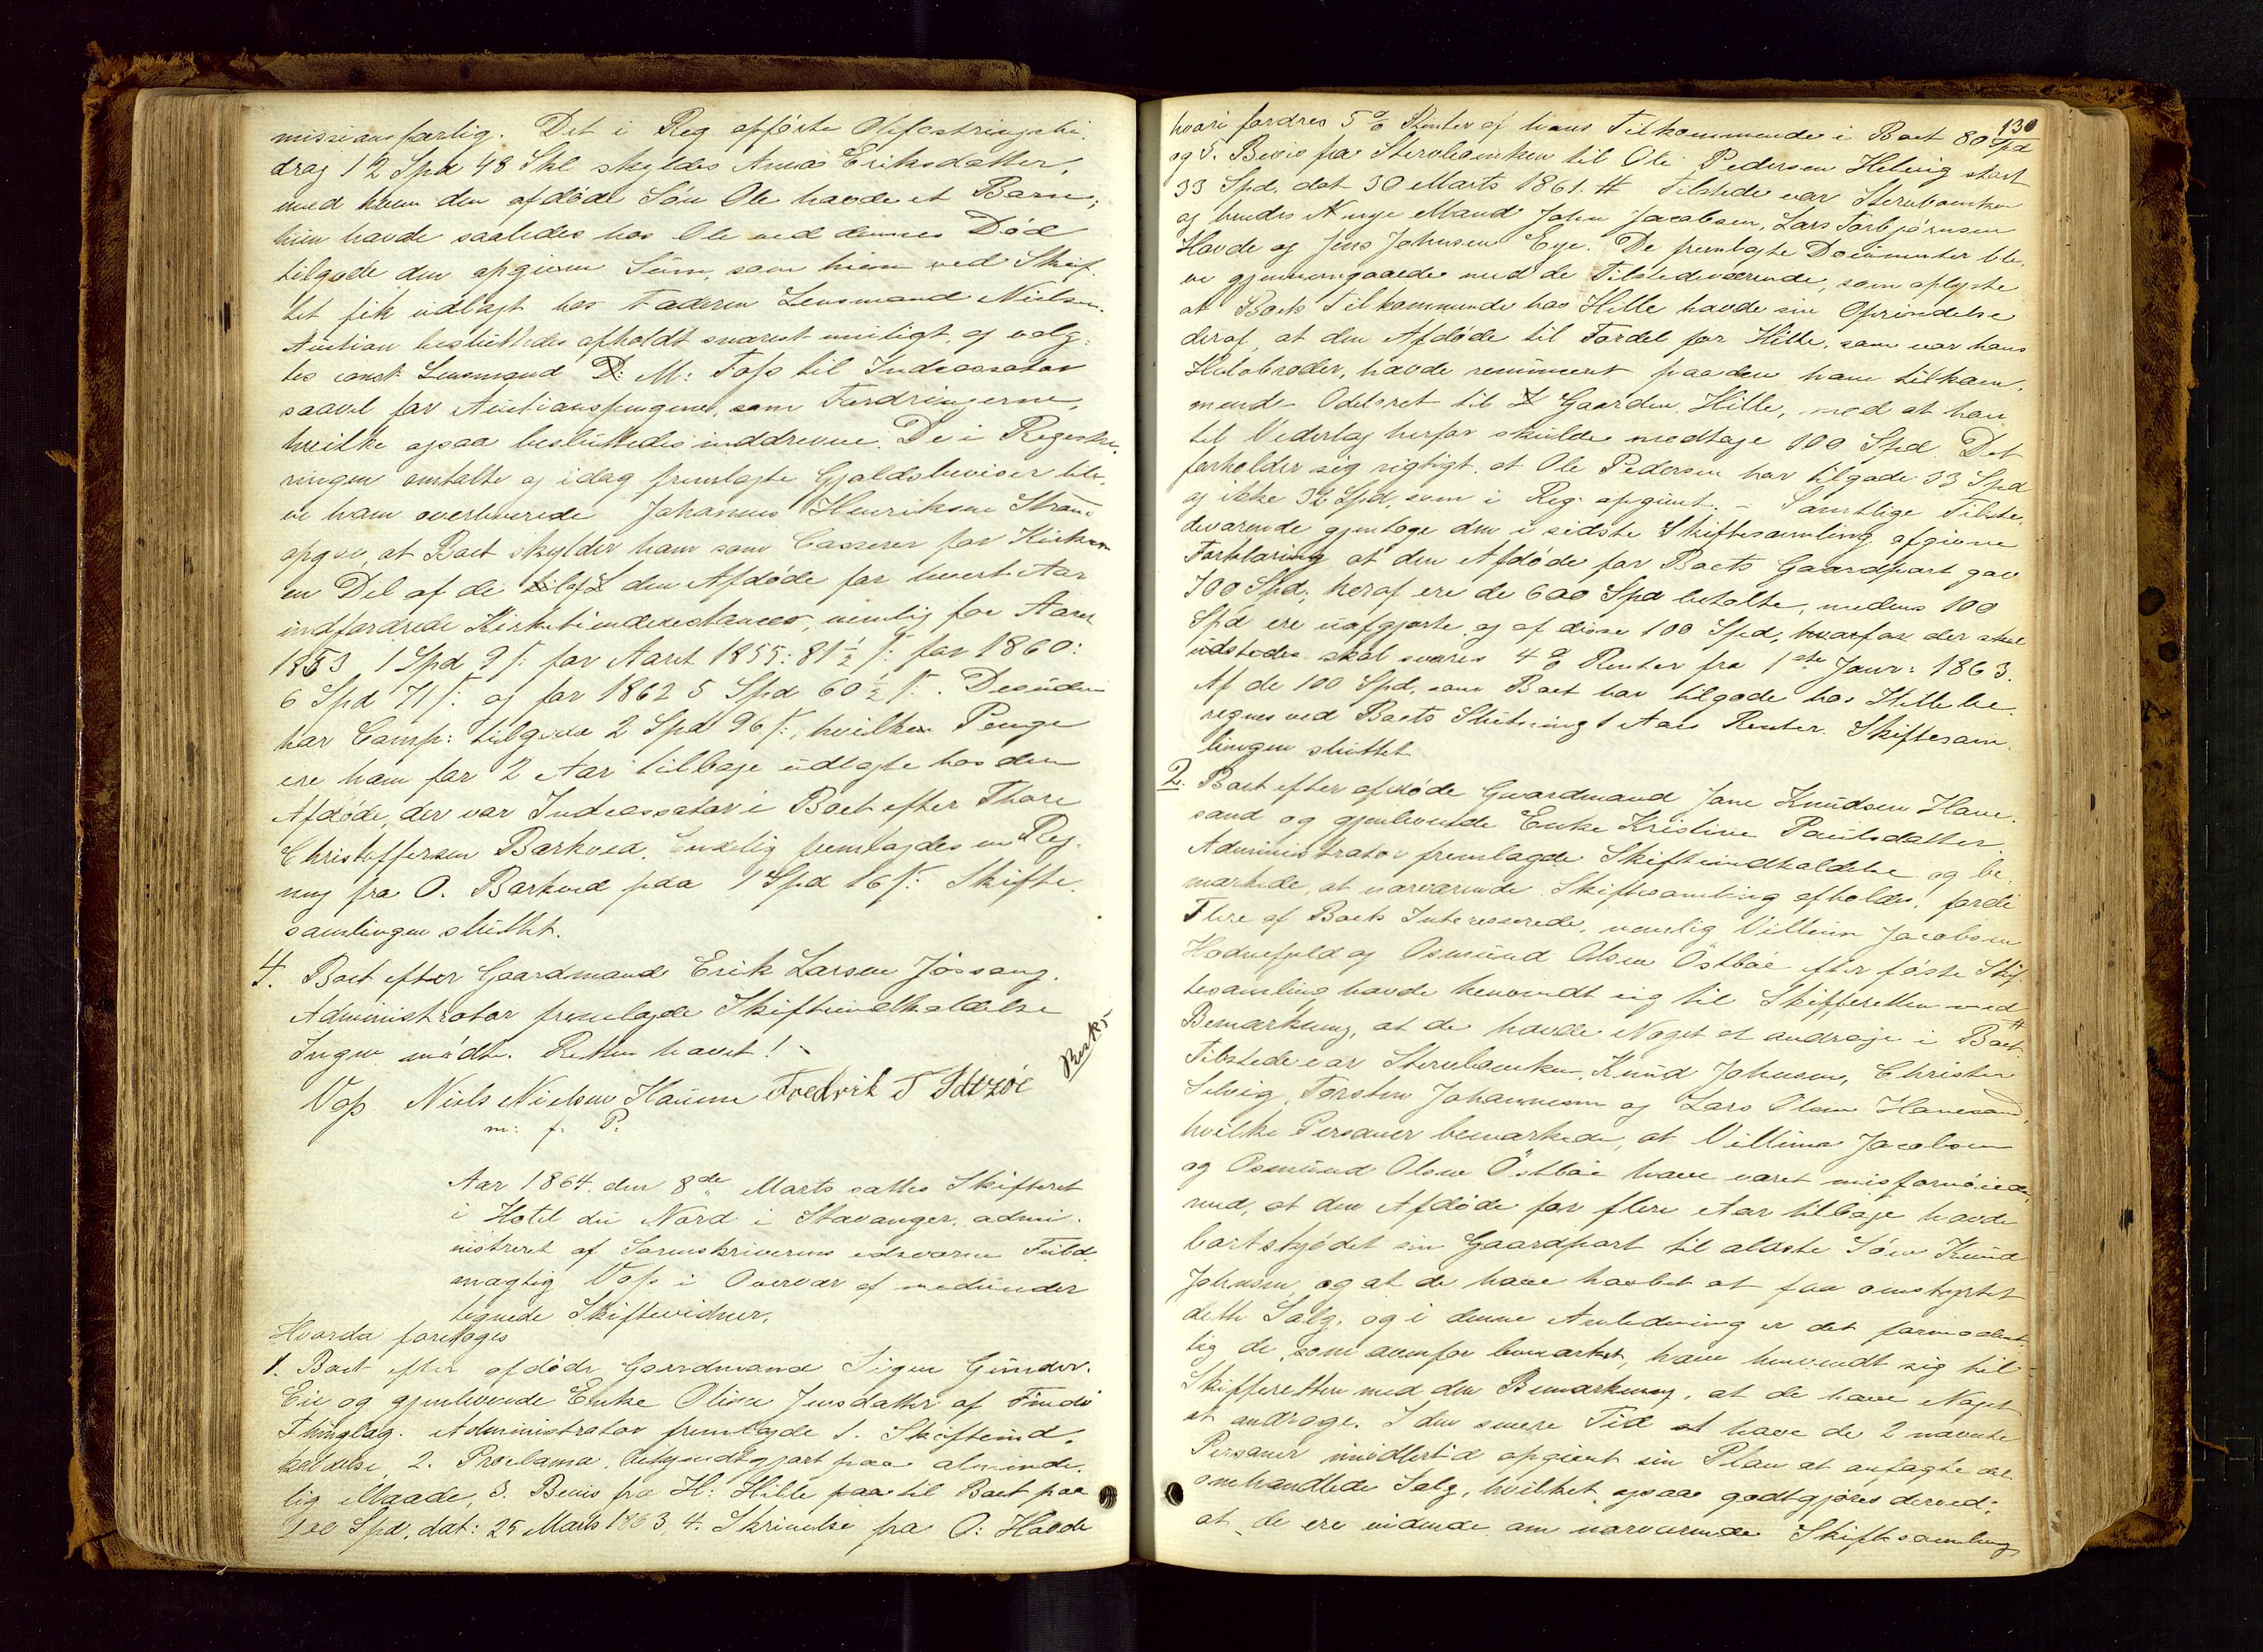 missionsfærlig. Det i Reg opførte Opfostringsbi-
drag 12 Spd 48 Skl skyldes Anna Eriksdatter,
med hvem den afdøde Søn Ole havde et Barn;
hun havde saaledes hos Ole ved dennes Død
tilgode den opgivne Sum, som hun ved Skif-
tet fik udlagt hos Faderen Lensmand Nielsen.
Auction besluttedes afholdt snarest muligt, og valg-
tes const. Lensmand D: M: Foss til Indcassator
saavel for Auctionspengene, som Fordringerne,
hvilke ogsaa besluttedes inddrevne. De i Registre-
ringen omtalte og idag fremlagte Gjældsbeviser ble-
ve ham overleverede. Johannes Henriksen Strand
opgav, at Boet skylder ham som Casserer for Kirken
en Del af de af den Afdøde for hvert Aar
indfordrede Kirketienderestancer, nemlig for Aaret
1853 1 Spd 9 s: for Aaret 1855: 81½ s: for 1860:
6 Spd 71 s: og for 1862 5 Spd 60½ s:. Desuden
har Comp: tilgode 2 Spd 96 s:, hvilke Penge
ere ham for 2 Aar tilbage udlagte hos den
Afdøde, der var Indcassator i Boet efter Thore
Christoffersen Barkved. Endelig fremlagdes en Reg-
ning fra O. Barkved paa 1 Spd 16 s: Skifte-
samlingen sluttet.
4. Boet efter Gaardmand Erik Larsen Jøssang.
Administrator fremlagde Skifteindkaldelse
Ingen mødte. Retten hævet!
Voss Niels Nielsen Hauene Fredrik T Idtzøe
m: f: P:
Aar 1864. den 8de Marts sattes Skifteret
i Hotel du Nord i Stavanger, admi-
nistreret af Sorenskriverens edsvorne Fuld-
mægtig Voss i Overvær af medunder-
tegnede Skiftevidner.
Hvorda foretoges
1. Boet efter afdøde Gaardmand Sigur Gunder-
Eie og gjenlevende Enke Oline Jensdatter af Findø
Thinglag. Administrator fremlagde 1. Skifteind-
kaldelse, 2. Proclama, bekjendtgjort paa alminde-
lig Maade, 3. Bevis fra H: Hille paa til Boet paa
100 Spd, dat: 25 Marts 1863, 4. Skrivelse fra O: Havde
130
hvori fordres 5 % Renter af hans Tilkommende i Boet 80 Spd
og 5. Bevis fra Stervboenken til Ole Pedersen Helvig stort
33 Spd. dat 30 Marts 1861. # Tilstede var Stervboenken
og hendes Nye Mand John Jacobsen, Lars Torbjørnsen
Havde og Jens Johnsen Eye. De fremlagte Documenter ble-
ve gjennemgaaede med de Tilstedeværende, som oplyste
at Boets Tilkommende hos Hille havde sin Oprindelse
deraf, at den Afdøde til Fordel for Hille, som var hans
Halvbroder, havde renunceret paa den ham tilkom-
mende Odelsret til Gaarden Hille, mod at han
til Vederlag herfor skulde modtage 100 Spd. Det
forholder sig rigtigt, at Ole Pedersen har tilgode 33 Spd
og ikke 32 Spd, som i Reg: opgivet. - Samtlige Tilste-
deværende gjentoge den i sidste Skiftesamling afgivne
Forklaring at den Afdøde for Boets Gaardpart gav
700 Spd; heraf ere de 600 Spd betalte, medens 100
Spd ere uafgjorte, og af disse 100 Spd, hvorfor der skal
udstedes skal svares 4 % Renter fra 1ste Janr: 1863.
Af de 100 Spd, som Boet har tilgode hos Hille be-
regnes ved Boets Slutning 1 Aars Renter. Skiftesam-
lingen sluttet
2. Boet efter afdøde Gaardmand Jone Knudsen Hane-
sand og gjenlevende Enke Kristine Paulsdatter.
Administrator fremlagde Skifteindkaldelse og be-
mærkede, at nærværende Skiftesamling afholdes, fordi
Flere af Boets Interesserede, nemlig Villum Jacobsen
Hodnefjeld og Osmund Olsen Østbøe efter første Skif-
tesamling havde henvendt sig til Skifteretten med
Bemærkning, at de havde Noget at andrage i Boet. #
Tilstede var Stervboenken, Knud Johnsen, Christen
Selvig, Torsten Johannesen og Lars Olsen Hanesand
hvilke Personer bemærkede, at Villum Jacobsen
og Osmund Olsen Østbøe have været misfornøiede
med, at den Afdøde for flere Aar tilbage havde
bortskjødet sin Gaardpart til ældste Søn Knud
Johnsen, og at de have haabet at faa omstyrtet
dette Salg, og i denne Anledning er det formodent-
lig de, som ovenfor bemærket, have henvendt sig til
Skifteretten med den Bemærkning, at de have Noget
at andrage. I den senere Tid at have de 2 nævnte
Personer imidlertid opgivet sin Plan at anfægte det
omhandlede Salg, hvilket ogsaa godtgjøres derved,
at de ere vidende om nærværende Skiftesamling